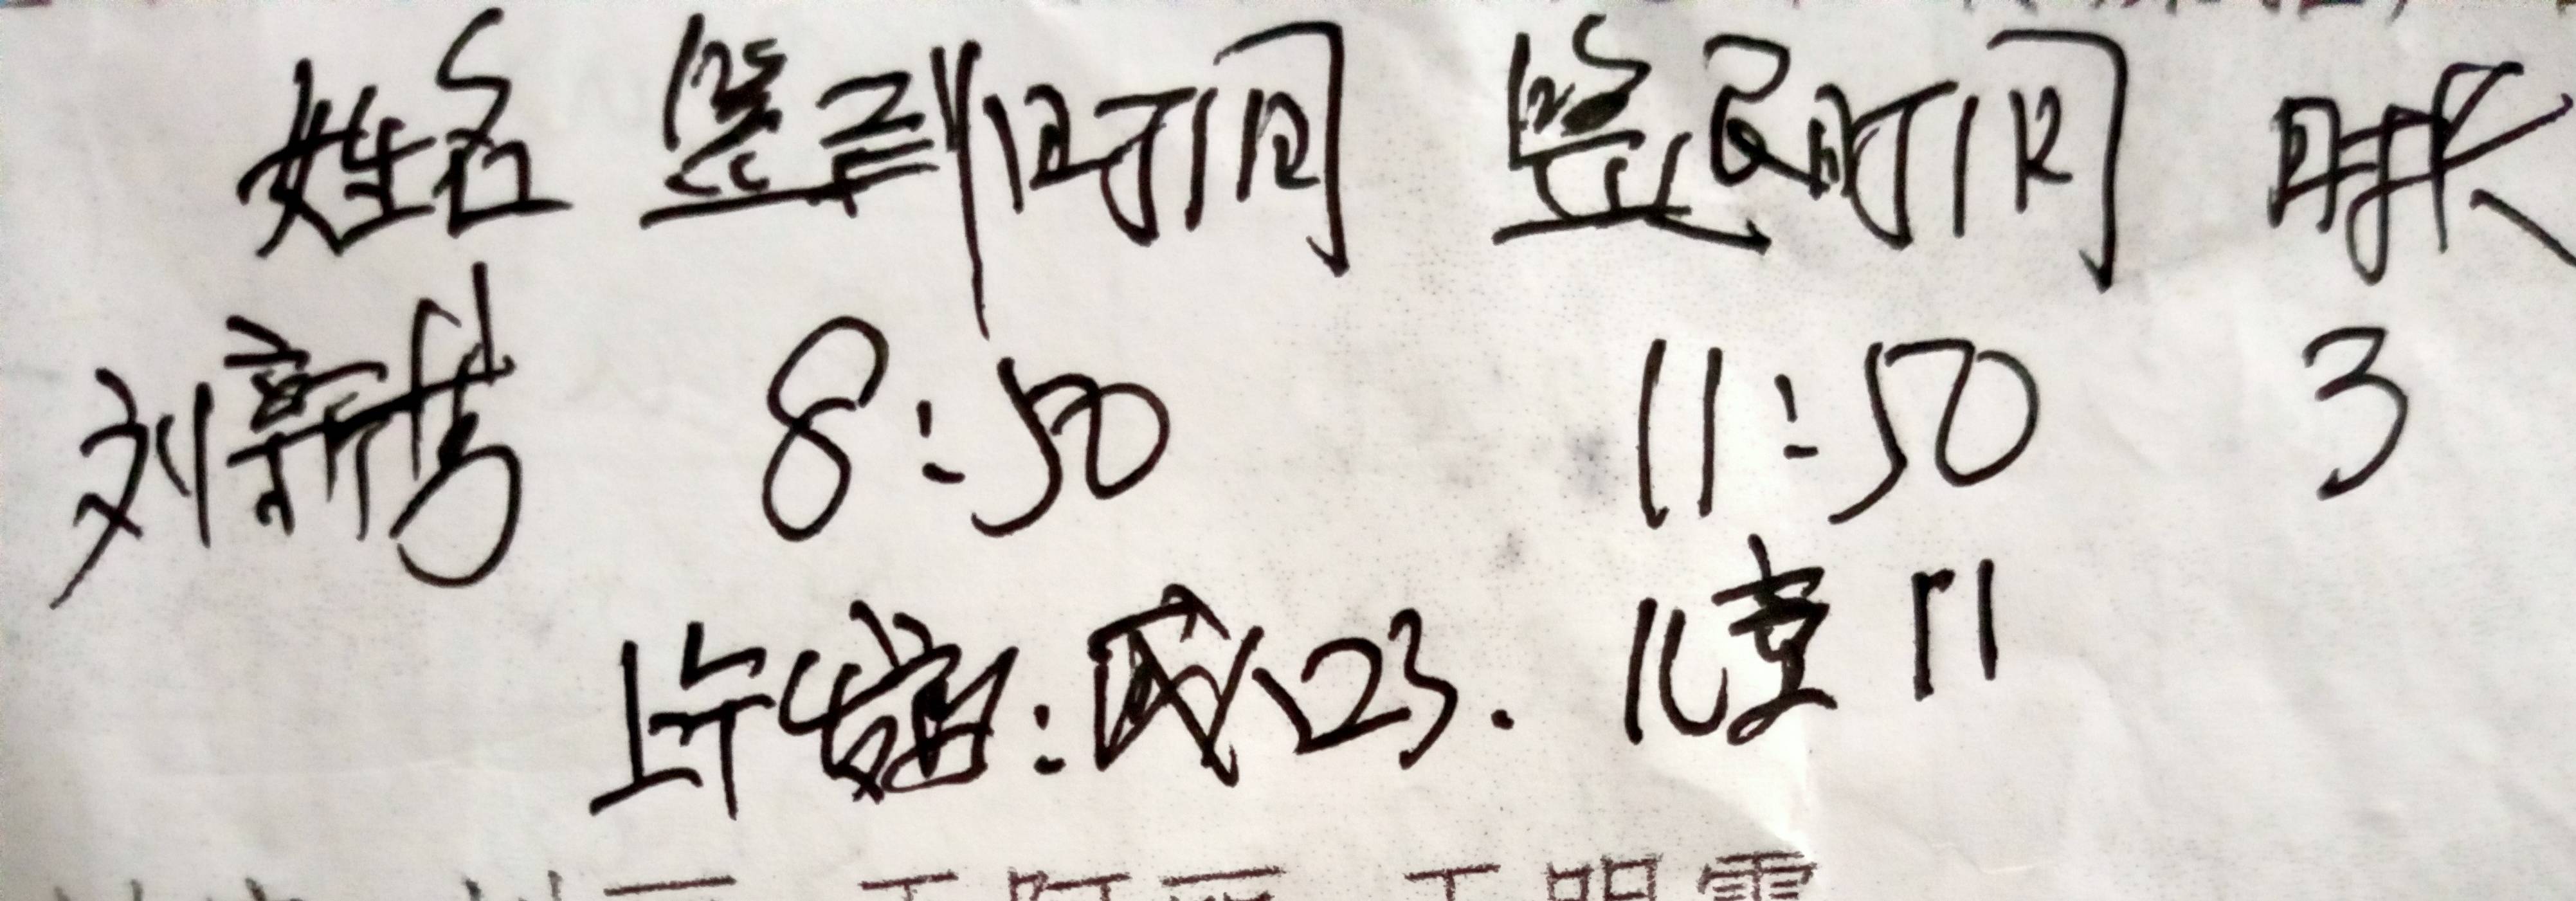 姓名 签到时间 签退时间 时长
刘新 8:50 11:50 3
上午 : 23. 儿童 11